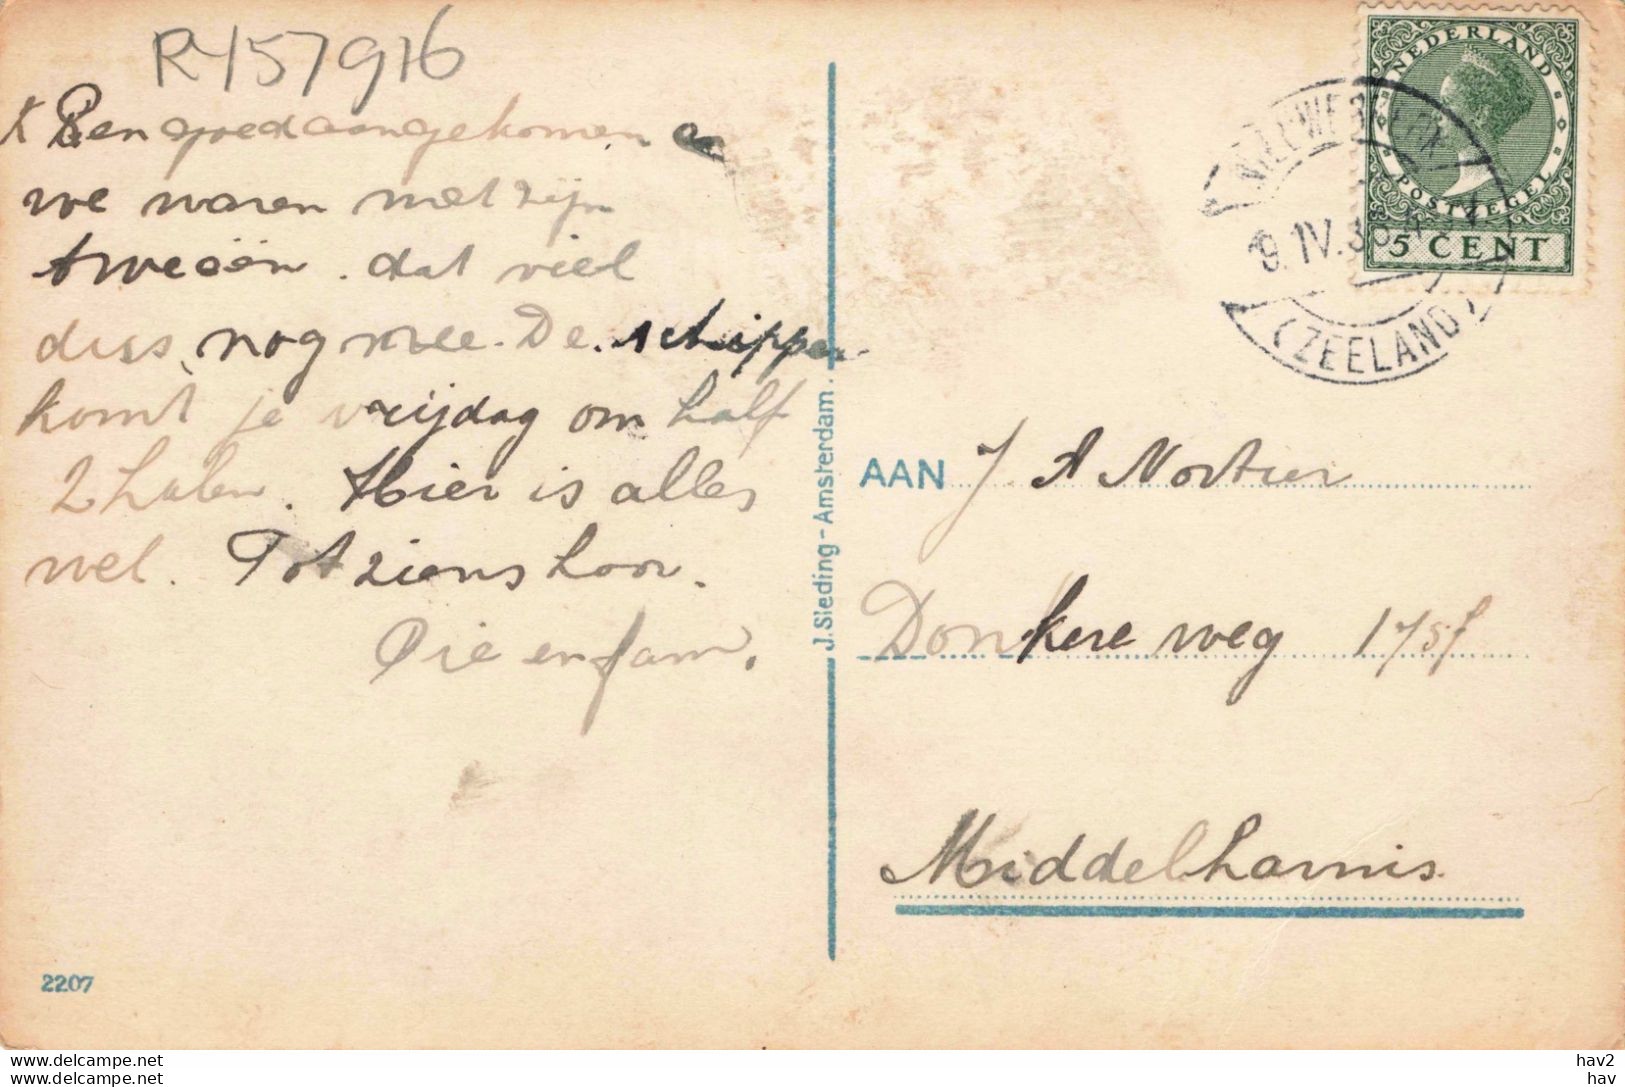 R-157916
K Ben goed aangekomen en
we waren met zijn
tweeën. dat viel
dus nog mee. De schipper
komt je vrijdag om half
2 halen. Hier is alles
wel. Tot ziens hoor.
Pie en fam.
2207
J. Sleding - Amsterdam.
NEDERLAND
POSTZEGEL
5 CENT
9.IV.38
(ZEELAND)
AAN J A Nortier
Donkere weg 175f
Middelharnis.
www.delcampe.net
www.delcampe.net
hav2
hav